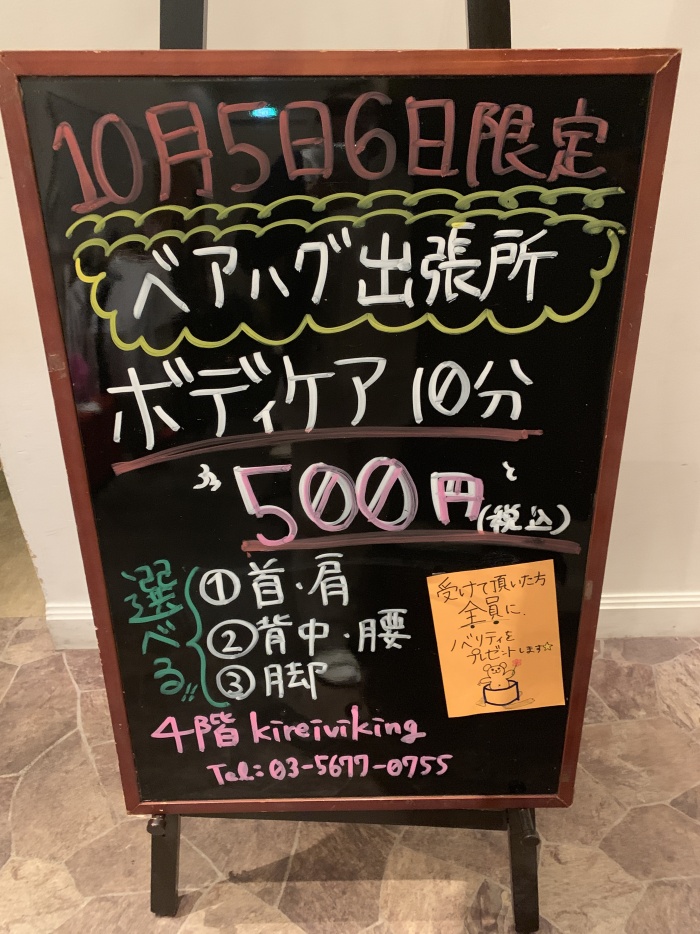 10月5日6日限定
ベアハグ出張所
ボディケア 10分
500円(税込)
選べる!!
①首・肩
②背中・腰
③脚
受けて頂いた方
全員に
ノベリティを
プレゼントします☆
4階 kireiviking
Tel:03-5677-0755